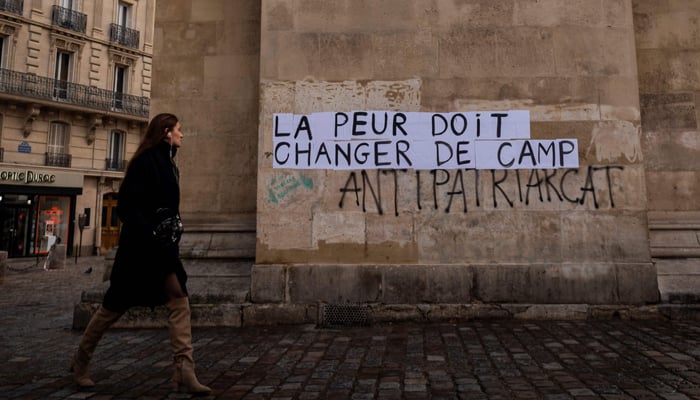 LA PEUR DOiT
CHANGER DE CAMP
ANTIPATRIARCAT
OPTIC DUROC